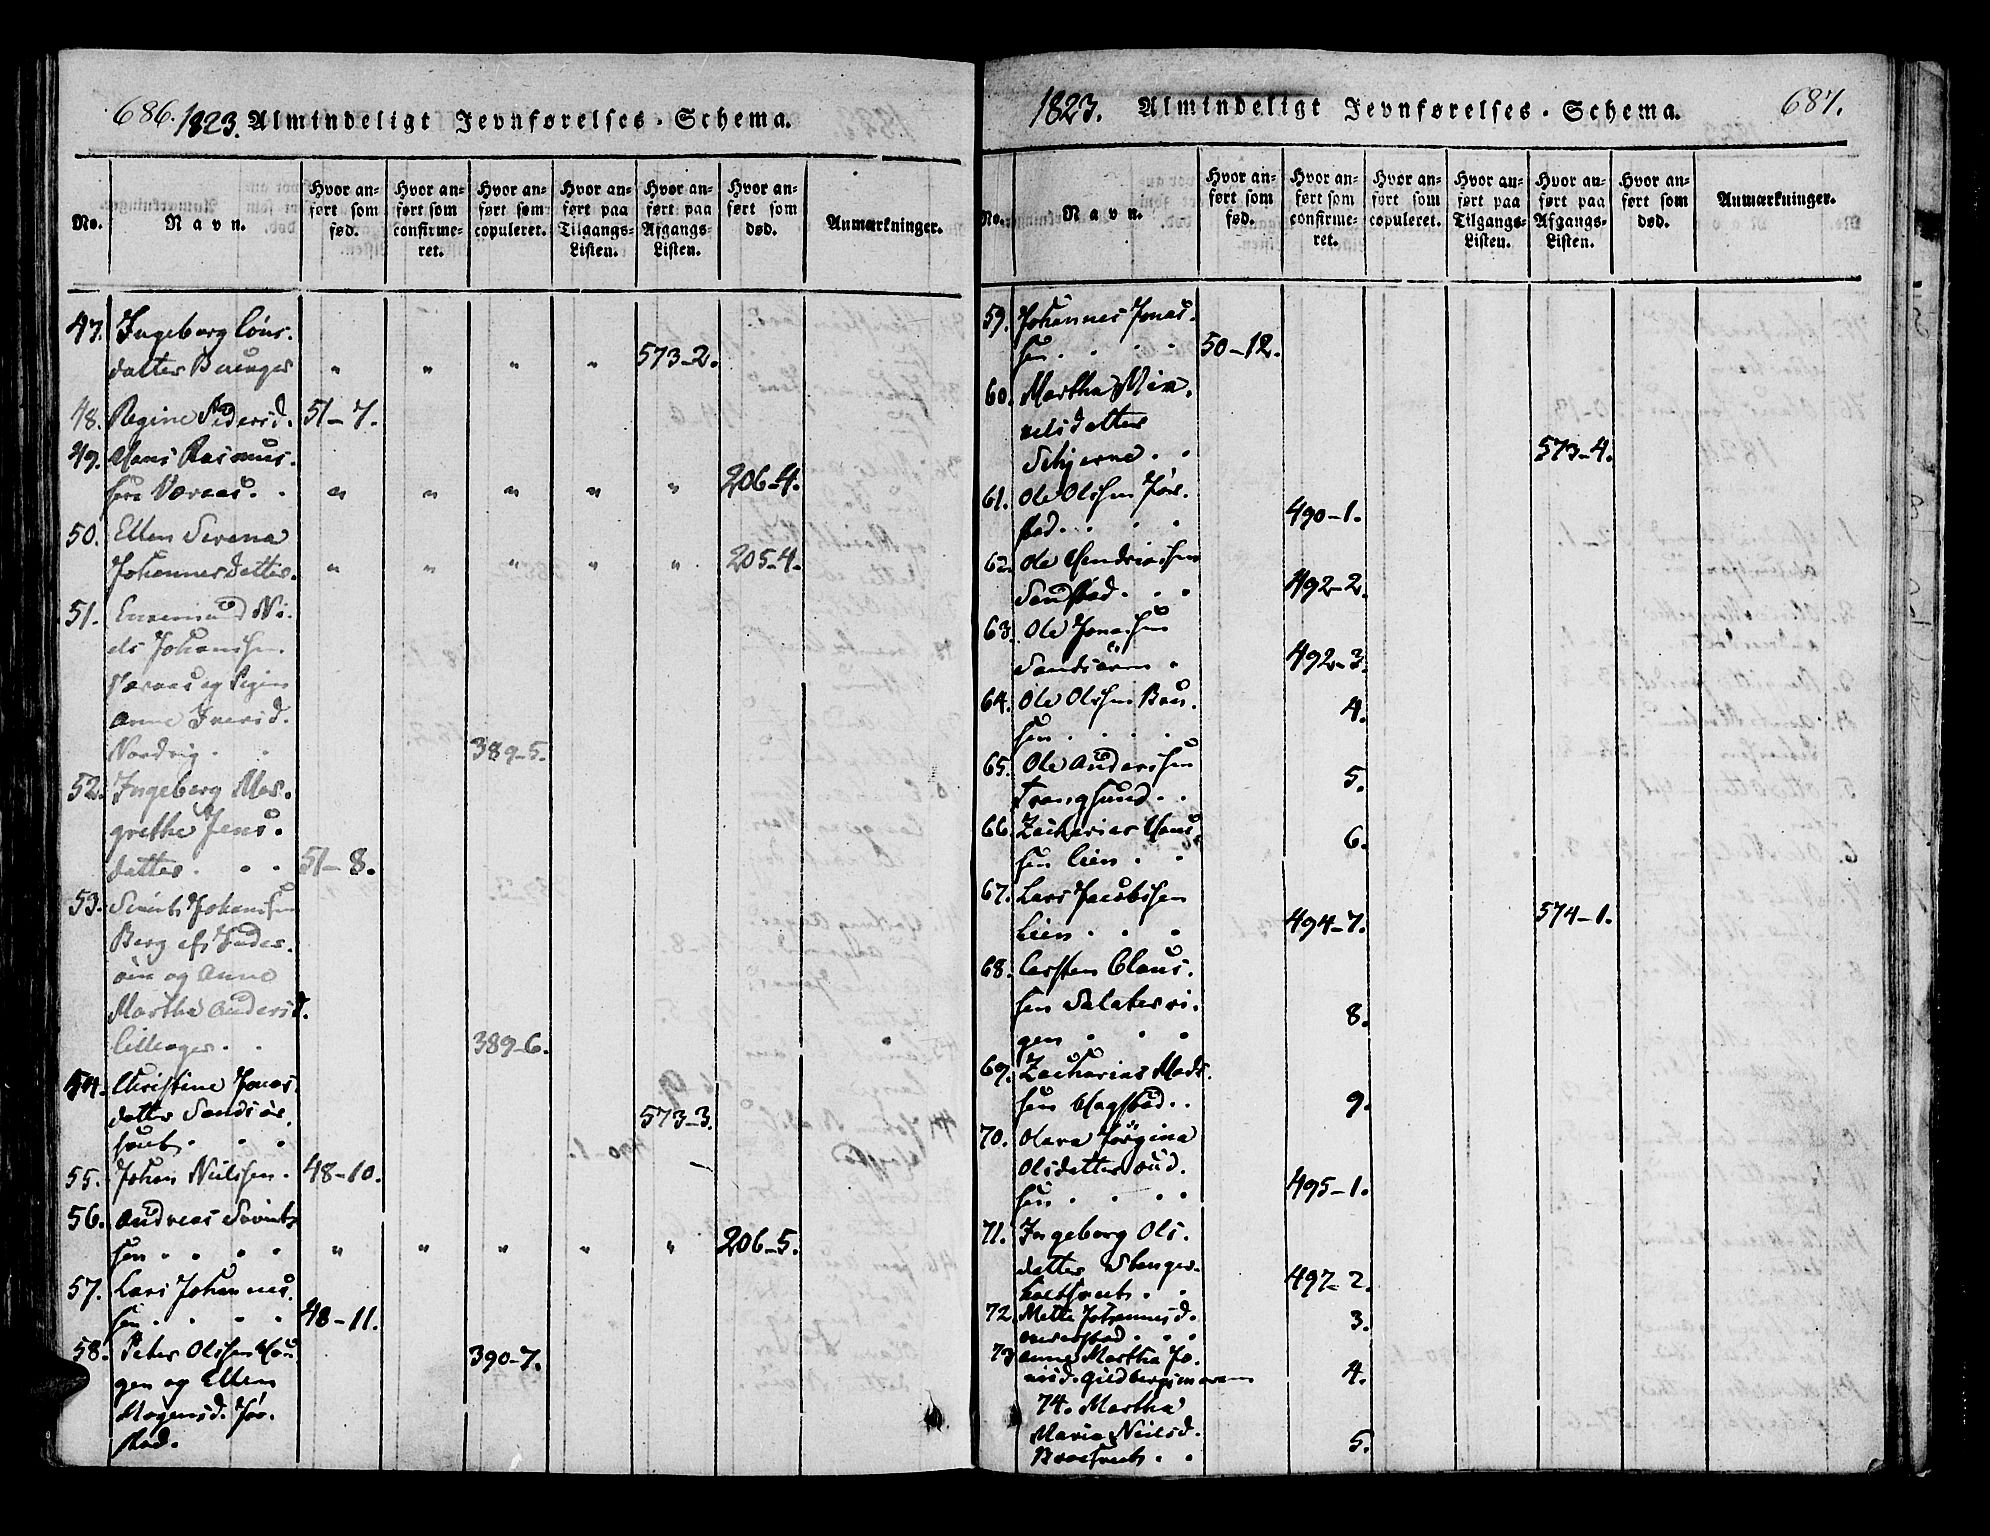 686. 1823. Almindeligt Jevnførelses-Schema.
No.
Navn.
Hvor an-
ført som
fød.
Hvor an-
ført som
confirme-
ret.
Hvor an-
ført som
copuleret.
Hvor an-
ført paa
Tilgangs-
Listen.
Hvor an-
ført paa
Afgangs-
Listen.
Hvor an-
ført som
død.
Anmærkninger.
47. Ingeborg Cons-
datter " " " " 573-2.
48. Regine Pedersd. 51-7.
49. Hans Rasmus-
sen Værnes. " " " " " 206-4.
50. Ellen Serena
Johannesdatter. " " " " " 205-4.
51. Ni-
els Johansen
Værnes og Pigen
Anne Iversd.
Nordvig. 389-5.
52. Ingeborg Mar-
grethe Jens-
datter. 51-8.
53. Sivert Johansen
Berg af Inder-
øen og Anne
Martha Andersd.
389-6.
54. Christine Jonas-
datter Sandsør-
hvet. 573-3.
55. Johan Nielssen. 48-10.
56. Andreas Siverts
sen " " " " " 206-5.
57. Lars Johannes-
sen 48-11.
58. Peter Olssen Hau- 390-7.
gen og Ellen
Mogensd. Før-
stad.
1823. Almindeligt Jevnførelses-Schema. 687.
No.
Navn.
Hvor an-
ført som
fød.
Hvor an-
ført som
confirme-
ret.
Hvor an-
ført som
copuleret.
Hvor an-
ført paa
Tilgangs-
Listen.
Hvor an-
ført paa
Afgangs-
Listen.
Hvor an-
ført som
død.
Anmærkninger.
59. Johannes Jonas-
sen. 50-12.
60. Martha
elsdatter
Schjerve 573-4.
61. Ole Olssen Før-
stad. 490-1.
62. Ole Hendrichsen
Sandstad. 492-2.
63. Ole Jonassen
Sandsøren 492-3.
64. Ole Olssen Baus- 4.
sen
65. Ole Andersen 5.
Trangsund.
66. Zacharias Hans 6.
sen Lien
67. Lars Jacobsen
Lien 494-7. 574-1.
68. Carsten Claus-
sen Salater vi- 8.
gen
69. Zacharias Mads
sen Hagstad. 9.
70. Olava Jørgina
Olsdatter
sen 495-1.
71. Ingeborg Ols-
datter Stanger-
holthvet 497-2.
72. Mette Johannesd.
3.
73 Anne Martha Jo-
4.
74. Martha
Maria Nielsd. 5.